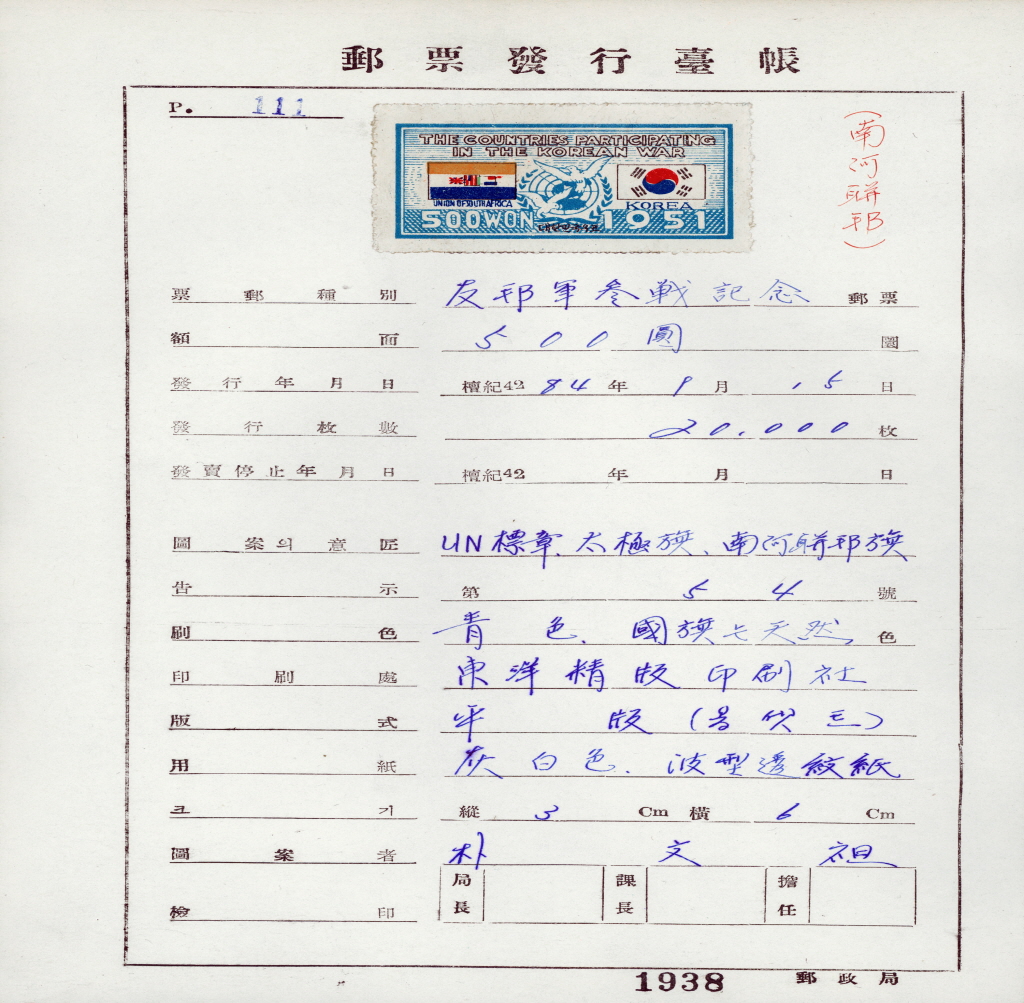 郵票發行臺帳
P. 111
THE COUNTRIES PARTICIPATING
IN THE KOREAN WAR
UNION OF SOUTH AFRICA
KOREA
500WON 대한민국우표 1951
(南阿聯邦)
票郵種別 友邦軍參戰記念 郵票
額面 500圓 圜
發行年月日 檀紀42 84年 9月 15日
發行枚數 20,000 枚
發賣停止年月日 檀紀42 年 月 日
圖案의意匠 UN標章、太極旗、南阿聯邦旗
告示 第 54 號
刷色 靑色、國旗는天然 色
印刷處 東洋精版印刷社
版式 平版(옵셋트)
用紙 灰白色、波型透紋紙
크기 縱 3 Cm 橫 6 Cm
圖案者 朴文祖
檢印 局長 課長 擔任
1938 郵政局